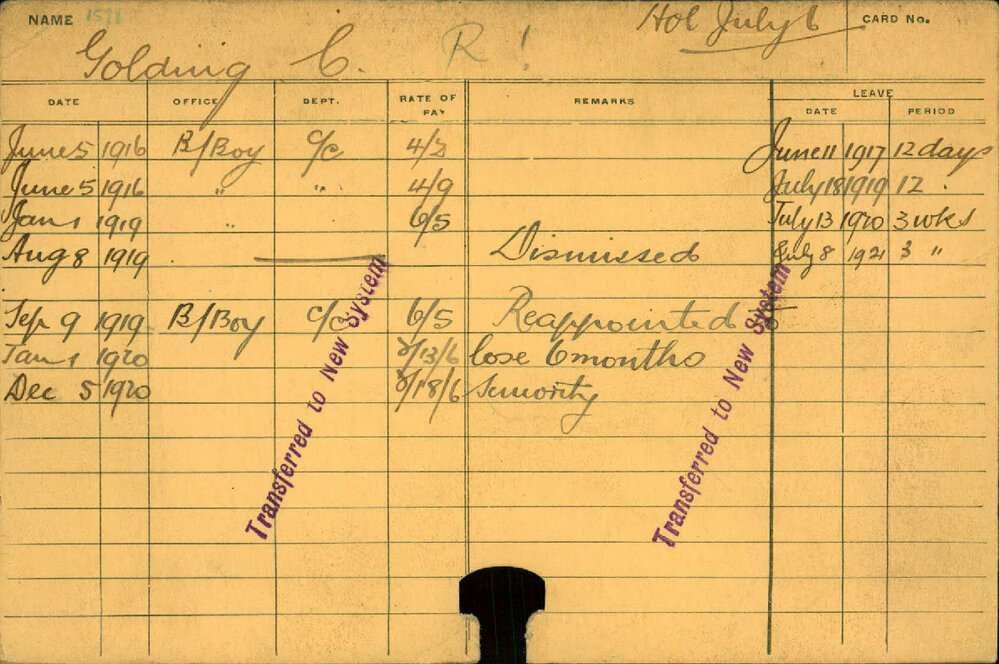 NAME 1578 Hol July 6 CARD No.
Golding C. R !
DATE OFFICE DEPT. RATE OF PAY REMARKS LEAVE
DATE PERIOD
June 5 1916 B/Boy C/C 4/2 June 11 1917 12 days
June 5 1916 " " 4/9 July 18 1919 12 "
Jan 1 1919 " 6/5 July 13 1920 3 wks
Aug 8 1919 Dismissed July 8 1921 3 "
Sep 9 1919 B/Boy C/C 6/5 Reappointed to
Jan 1 1920 /13/6 lose 6 months
Dec 5 1920 /18/6 Seniority
Transferred to New System
Transferred to New System